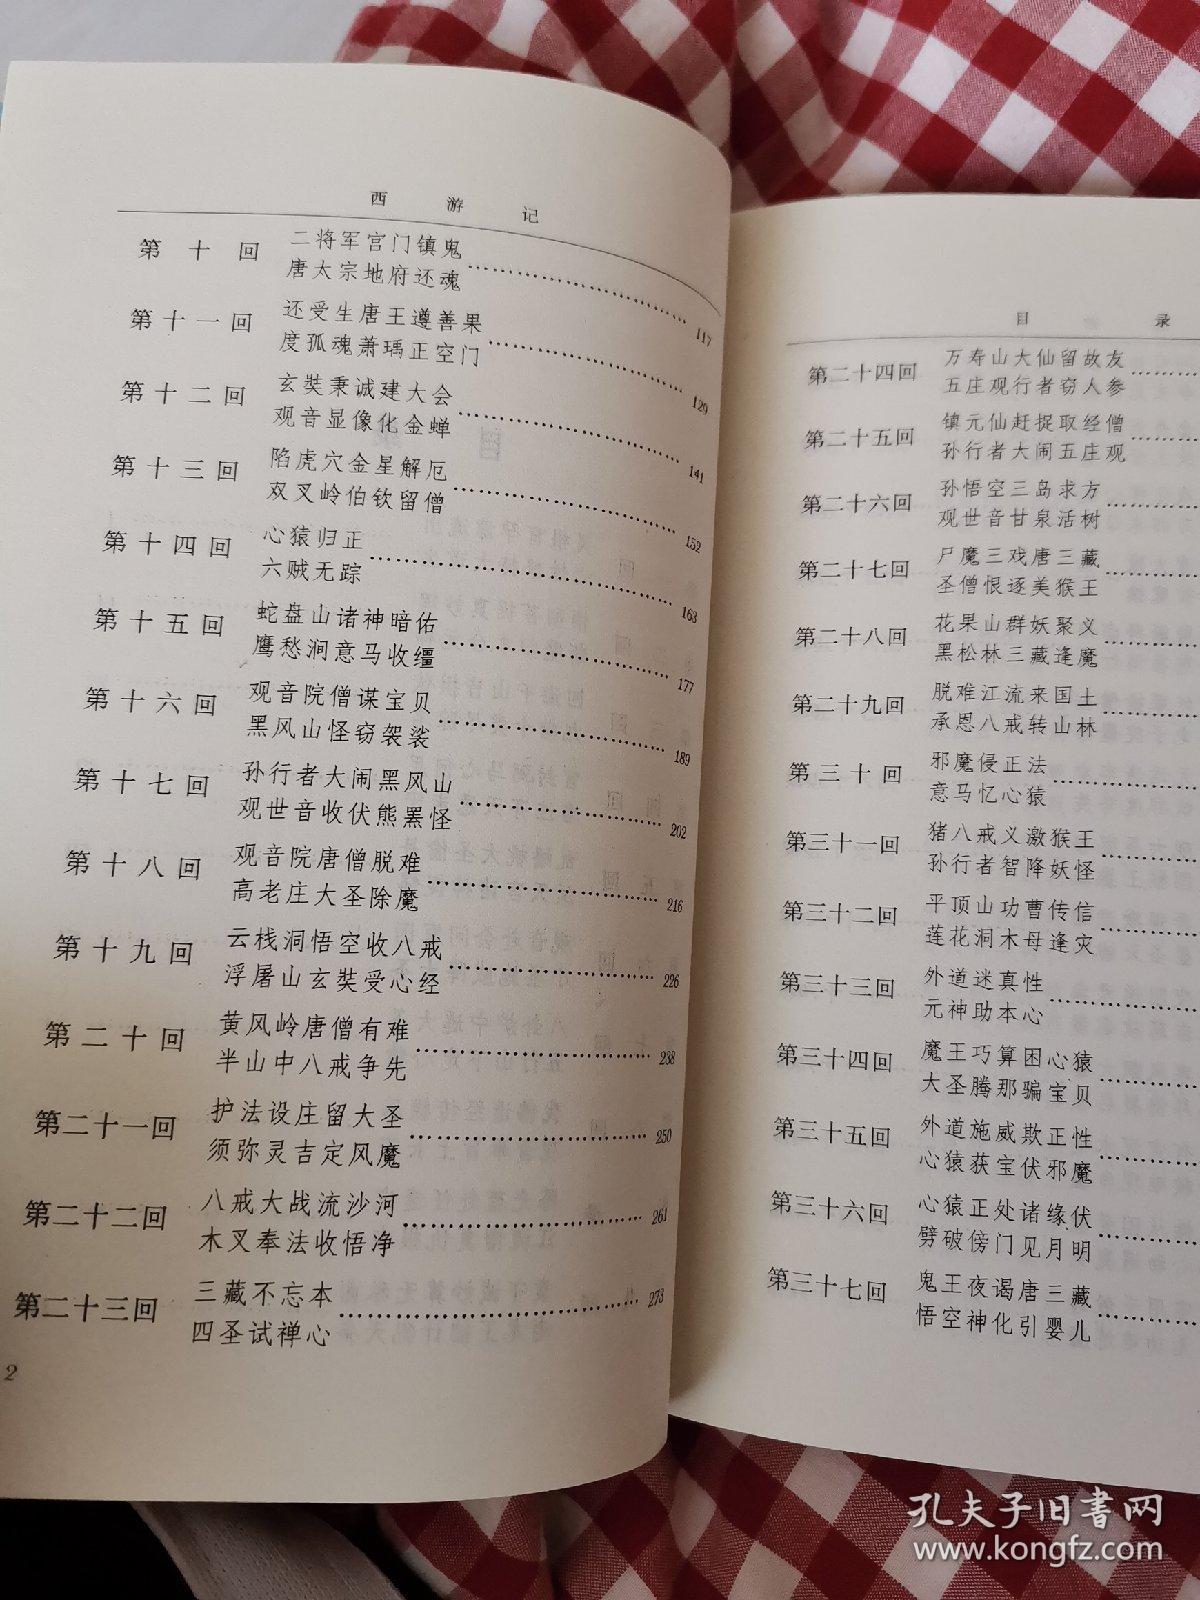 西游记
第十回
二将军宫门镇鬼
唐太宗地府还魂
117
第十一回
还受生唐王遵善果
度孤魂萧瑀正空门
129
第十二回
玄奘秉诚建大会
观音显像化金蝉
141
第十三回
陷虎穴金星解厄
双叉岭伯钦留僧
152
第十四回
心猿归正
六贼无踪
163
第十五回
蛇盘山诸神暗佑
鹰愁涧意马收缰
177
第十六回
观音院僧谋宝贝
黑风山怪窃袈裟
189
第十七回
孙行者大闹黑风山
观世音收伏熊罴怪
202
第十八回
观音院唐僧脱难
高老庄大圣除魔
216
第十九回
云栈洞悟空收八戒
浮屠山玄奘受心经
226
第二十回
黄风岭唐僧有难
半山中八戒争先
238
第二十一回
护法设庄留大圣
须弥灵吉定风魔
250
第二十二回
八戒大战流沙河
木叉奉法收悟净
261
第二十三回
三藏不忘本
四圣试禅心
273
2
目录
第二十四回
万寿山大仙留故友
五庄观行者窃人参
第二十五回
镇元仙赶捉取经僧
孙行者大闹五庄观
第二十六回
孙悟空三岛求方
观世音甘泉活树
第二十七回
尸魔三戏唐三藏
圣僧恨逐美猴王
第二十八回
花果山群妖聚义
黑松林三藏逢魔
第二十九回
脱难江流来国土
承恩八戒转山林
第三十回
邪魔侵正法
意马忆心猿
第三十一回
猪八戒义激猴王
孙行者智降妖怪
第三十二回
平顶山功曹传信
莲花洞木母逢灾
第三十三回
外道迷真性
元神助本心
第三十四回
魔王巧算困心猿
大圣腾那骗宝贝
第三十五回
外道施威欺正性
心猿获宝伏邪魔
第三十六回
心猿正处诸缘伏
劈破傍门见月明
第三十七回
鬼王夜谒唐三藏
悟空神化引婴儿
孔夫子旧书网
www.kongfz.com